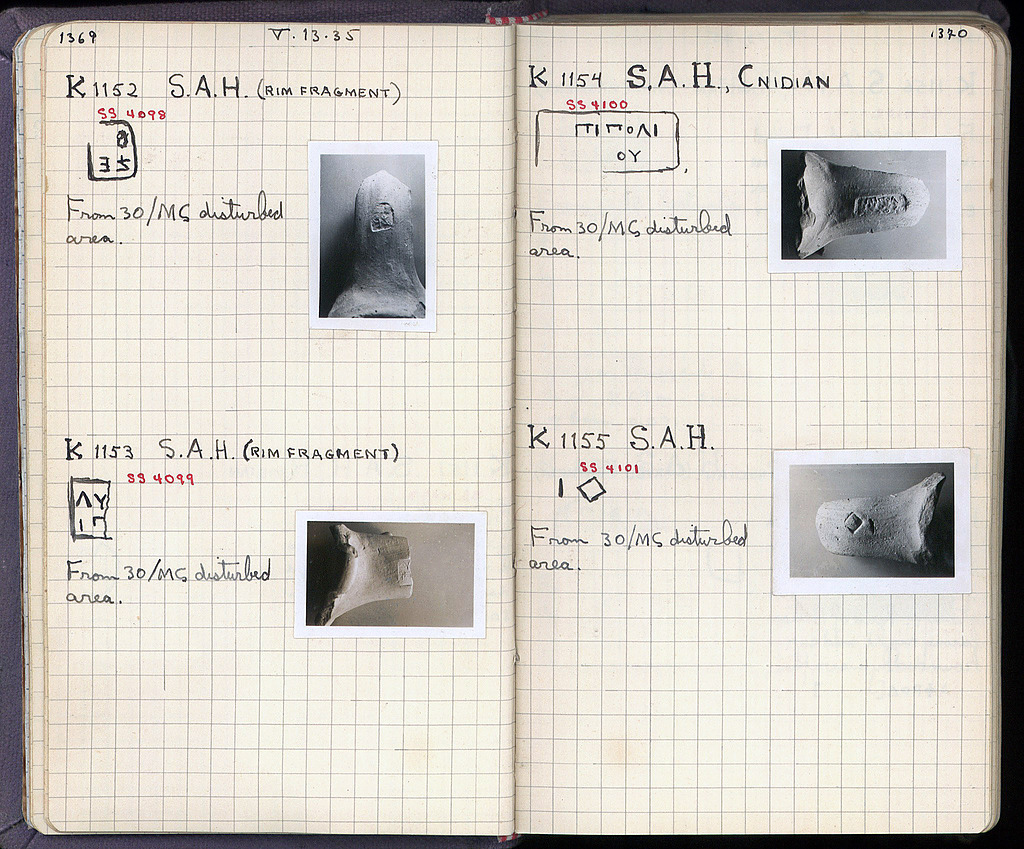 1369
V.13.35
K 1152 S.A.H. (RIM FRAGMENT)
SS 4098
From 30/ΜΣ disturbed
area.
K 1153 S.A.H. (RIM FRAGMENT)
SS 4099
ΛΥ
ΙΓ
From 30/ΜΣ disturbed
area.
1370
K 1154 S.A.H., CNIDIAN
SS 4100
ΠΟΛΙ
ΟΥ
From 30/ΜΣ disturbed
area.
K 1155 S.A.H.
SS 4101
From 30/ΜΣ disturbed
area.